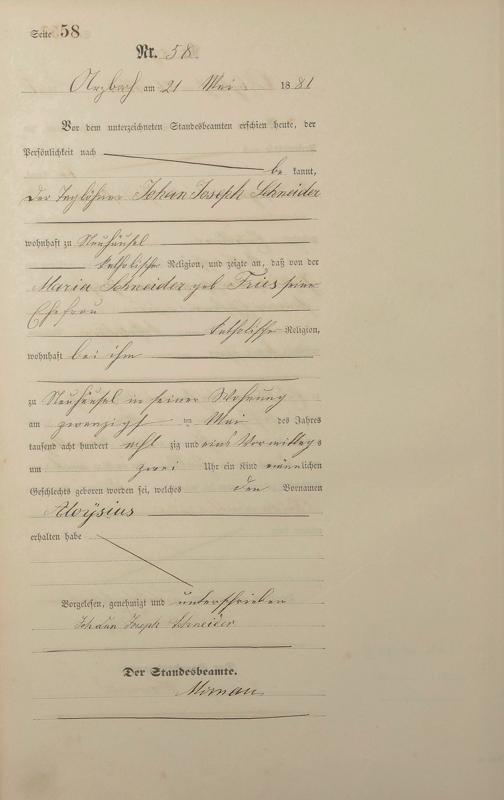 Seite 58
Nr. 58
Arzbach am 21 Mai 1881
Vor dem unterzeichneten Standesbeamten erschien heute, der
Persönlichkeit nach
be kannt,
der Taglöhner Johan Joseph Schneider
wohnhaft zu Neuhäusel
katholischer Religion, und zeigte an, daß von der
Maria Schneider geb Fries seiner
Ehefrau
katholische Religion,
wohnhaft bei ihm
zu Neuhäusel in seiner Wohnung
am zwanzigst ten Mai des Jahres
tausend acht hundert acht zig und eins Vormittag s
um zwei Uhr ein Kind männlichen
Geschlechts geboren worden sei, welches den Vornamen
Aloÿsius
erhalten habe
Vorgelesen, genehmigt und unterschrieben
Johann Joseph Schneider
Der Standesbeamte.